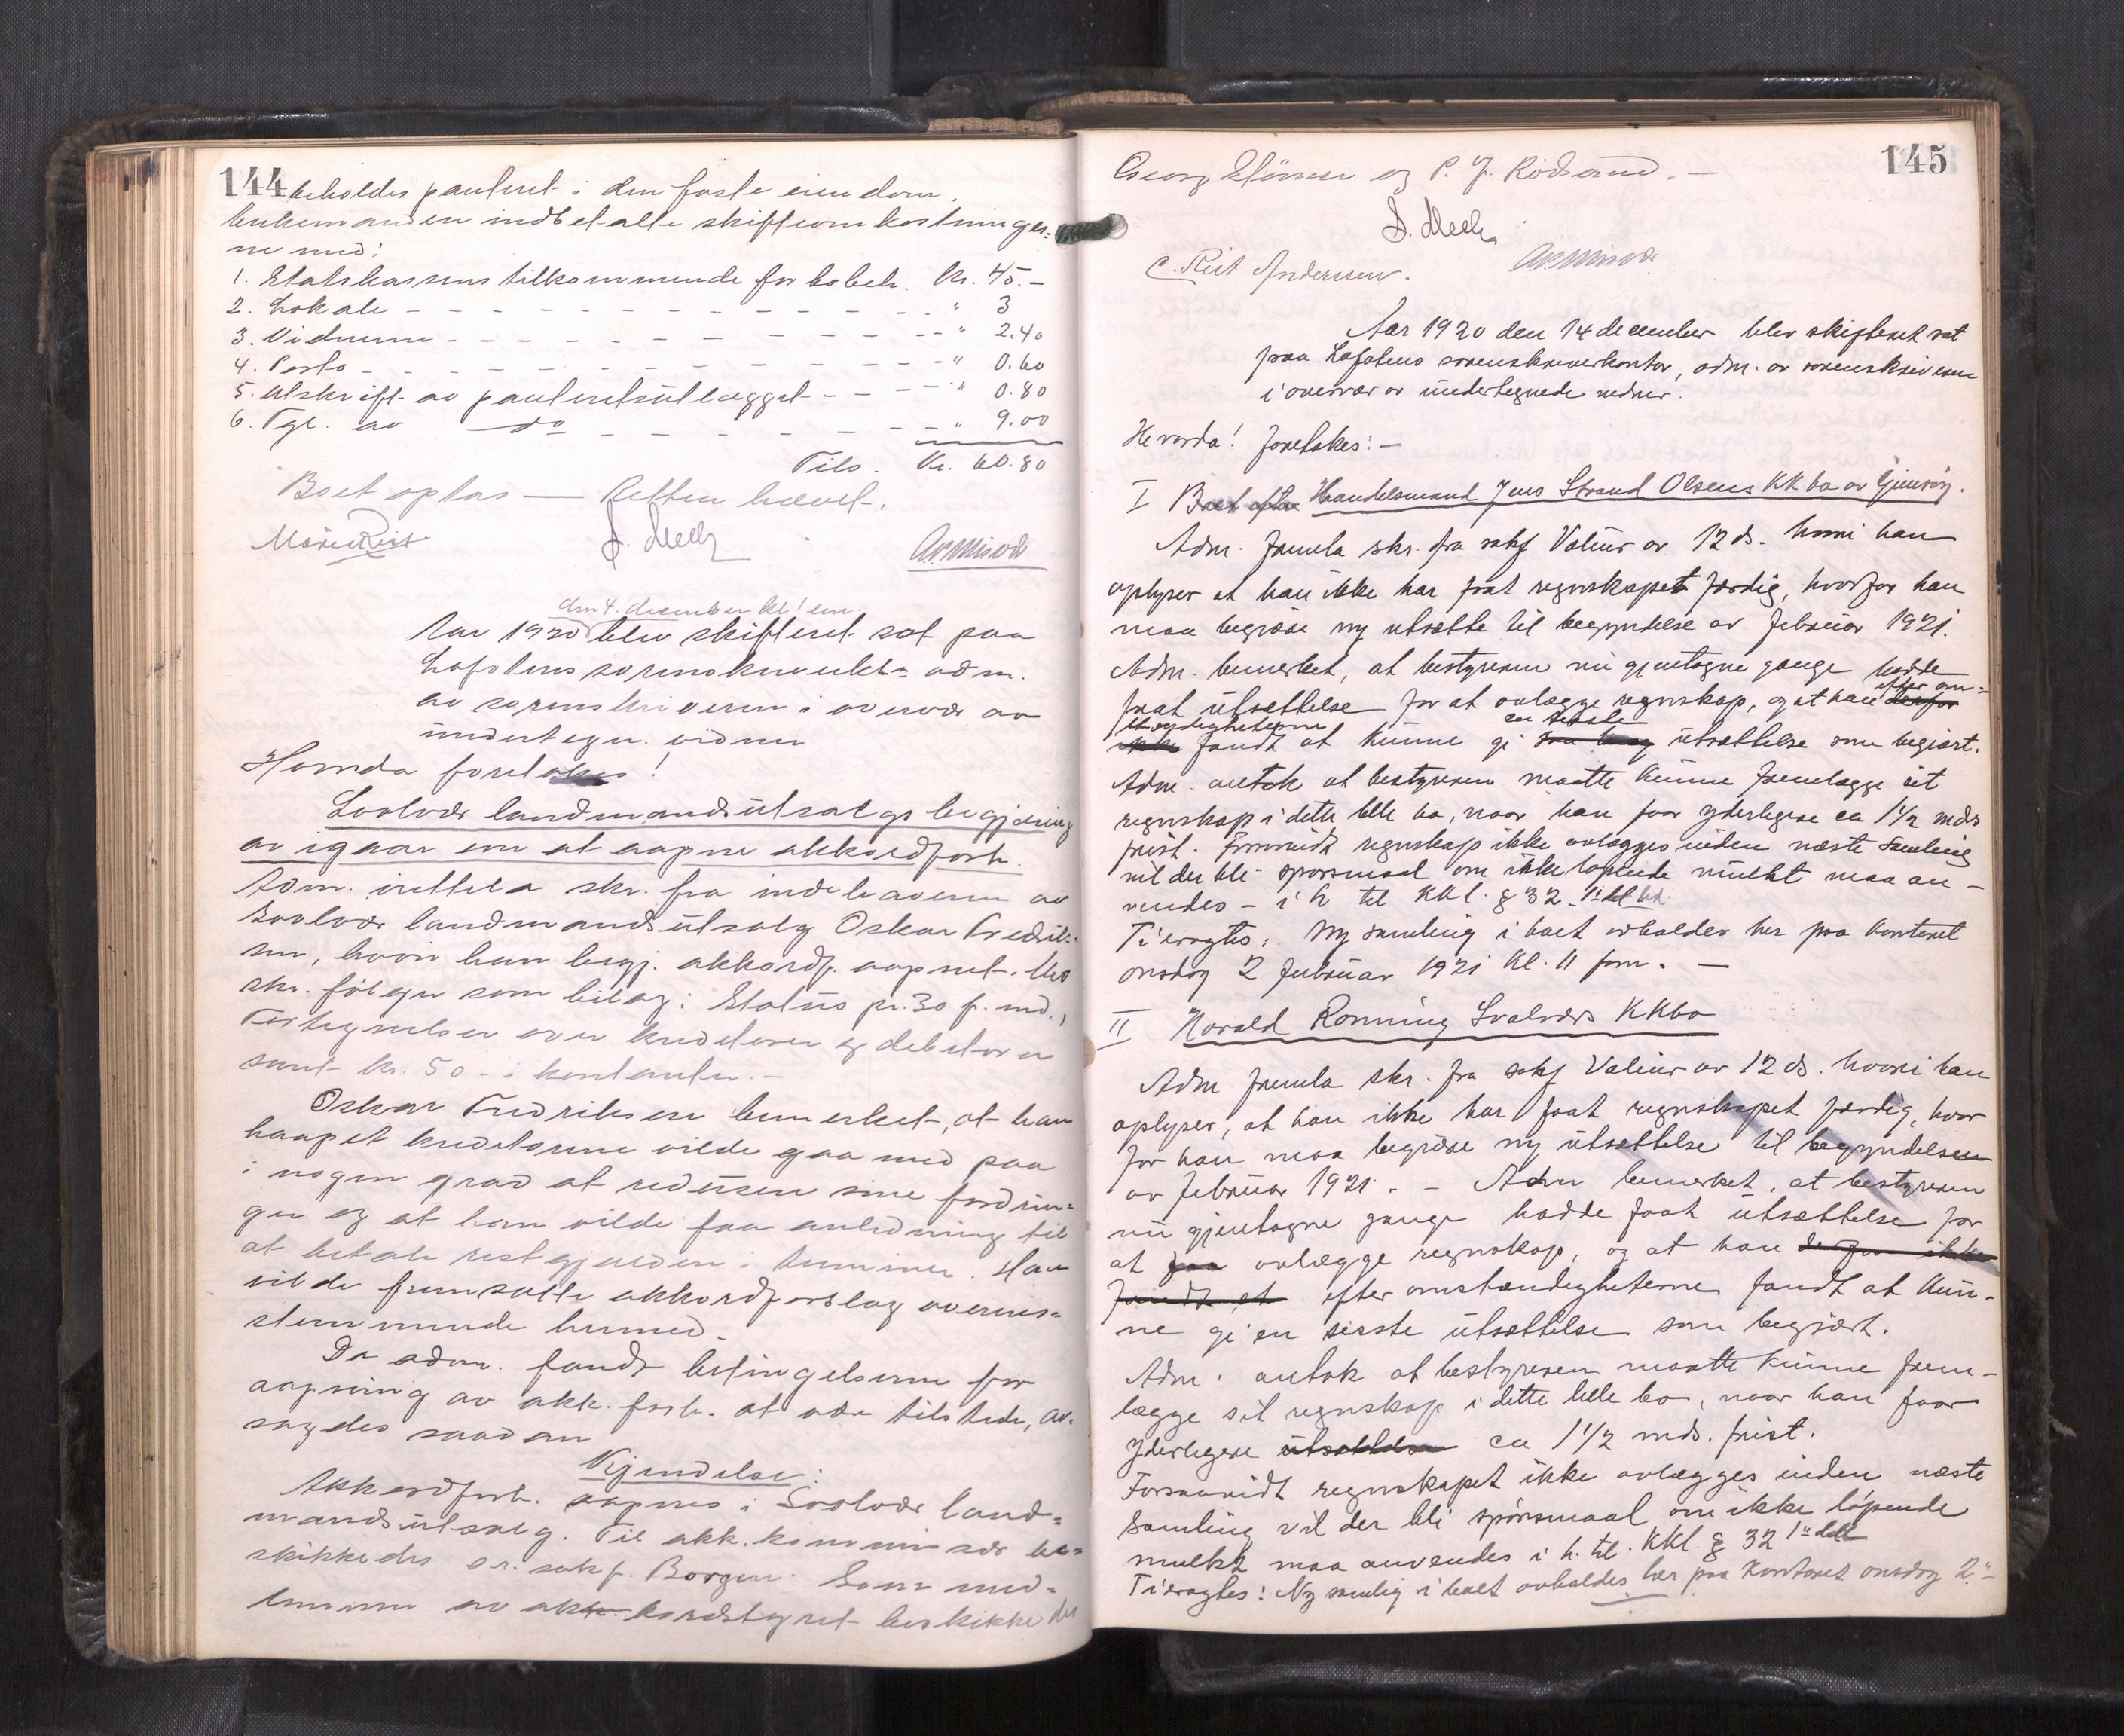 144
beholdes panteret i den faste eiendom.
Enkemanden indbetalte skifteomkostninger=
ne med:
1. Statskassens tilkommende for bobeh. Kr. 45.–
2. Lokale - - - - " 3
3. Vidnerne - - - - " 2.40
4. Porto - - - - " 0.60
5. Utskrift av panteretsutlægget - - - " 0.80
6. Tgl. av do - - - - " 9.00
Tils. Kr. 60.80
Boet optas — Retten hævet.
den 4. december kl 1 em.
Aar 1920 blev skifteret sat paa
Lofotens sorenskriverkt= adm.
av sorenskriveren i overvær av
undertegn. vidner
Hvorda foretokes!
Svolvær landmandsutsalgs begjæring
av igaar om at aapne akkordforh.
Adm. irettela skr. fra indehaveren av
Svolvær landmandsutsalg Oskar Fredrik=
sen, hvori han begj. akkordf. aapnet. Med
skr. følger som bilag: Status pr. 30 f. md.,
Fortegnelser over kreditorer og debitorer
samt kr. 50 - i kontanter. –
Oskar Fredriksen bemerket, at han
haapet kreditorerne vilde gaa med paa
i nogen grad at redusere sine fordrin=
ger og at han vilde faa anledning til
at betale restgjælden i terminer. Han
vilde fremsætte akkordforslag overens=
stemmende hermed.
Da adm. fandt betingelserne for
aapning av akk. forh. at være tilstede, av=
sagdes saadan
Kjendelse:
Akkordforh. aapnes i Svolvær land=
mandsutsalg. Til akk. kommissær be=
skikkedes o.r. sakf. Borgen. Som med=
lemmer av akkordstyret beskikkedes
145
Georg Størmer og P. J. Rödsand. –
C. Riist Andersen.
Aar 1920 den 14 december blev skifteret sat
paa Lofotens sorenskriverkontor, adm. av sorenskriveren
i overvær av undertegnede vidner.
Hvorda! foretokes: –
I Boet efter Handelsmand Jens Strand Olsens KKbo av Gimsöy.
Adm. fremla skr. fra sakf Valeur av 12 ds. hvori han
oplyser at han ikke har faat regnskapet færdig, hvorfor han
maa begjære ny utsætte til begyndelse av februar 1921.
Adm. bemerket, at bestyreren nu gjentagne gange hadde
faat utsættelse for at avlægge regnskap, og at han derfor efter om=
stændigheterne ikke fandt at kunne gi saa lang en sidste utsættelse som begjært.
Adm. antok at bestyreren maatte kunne fremlægge sit
regnskap i dette lille bo, naar han faar yderligere ca 1½ mds
frist. Forsaavidt regnskap ikke avlægges inden næste samling
vil der bli spørsmaal om ikke løpende mulkt maa an –
vendes – i h. til KKl. § 32 – 1ste led.
Ti eragtes: Ny samling i boet avholdes her paa kontoret
onsdag 2 februar 1921 kl. 11 fm. –
II Harald Rønning Svolværs KKbo
Adm fremla skr. fra sakf Valeur av 12 ds. hvori han
oplyser, at han ikke har faat regnskapet færdig, hvor
for han maa begjære ny utsættelse til begyndelsen
av februar 1921. – Adm bemerket, at bestyreren
nu gjentagne gange hadde faat utsættelse for
at faa avlægge regnskap, og at han derfor ikke
fandt at efter omstændigheterne fandt at kun-
ne gi en sisste utsættelse som begjært.
Adm. antok at bestyreren maatte kunne frem-
lægge sit regnskap i dette lille bo, naar han faar
yderligere utsættelse ca 1½ mds. frist.
Forsaavidt regnskapet ikke avlægges inden næste
samling vil der bli spørsmaal om ikke løpende
mulkt maa anvendes i h. til. KKl. § 32 1ste led
Ti eragtes: Ny samling i boet avholdes her paa kontoret onsdag 2.